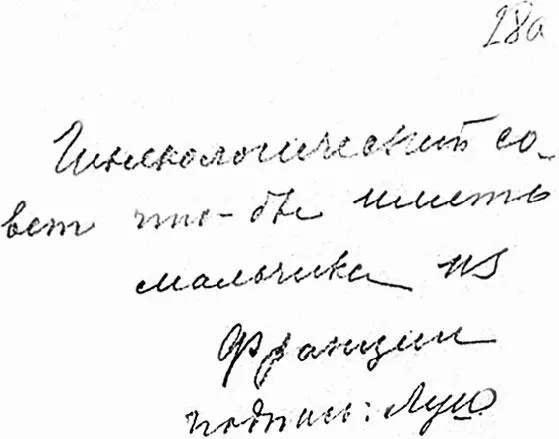 28а
Гинекологический со-
вет что-бы иметь
мальчика из
Франции
подпись: Луи.